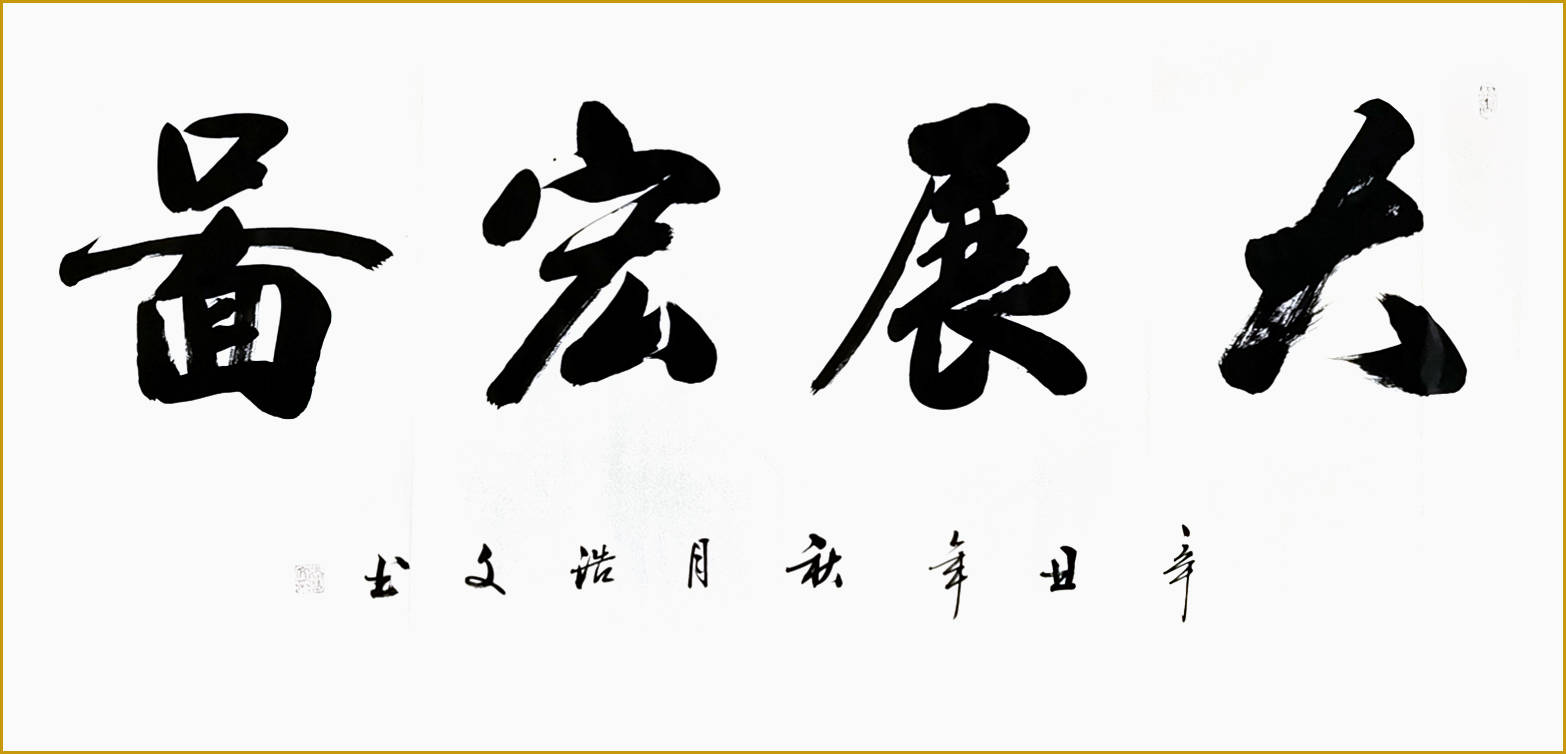 大展宏圖
辛丑年秋月浩文书